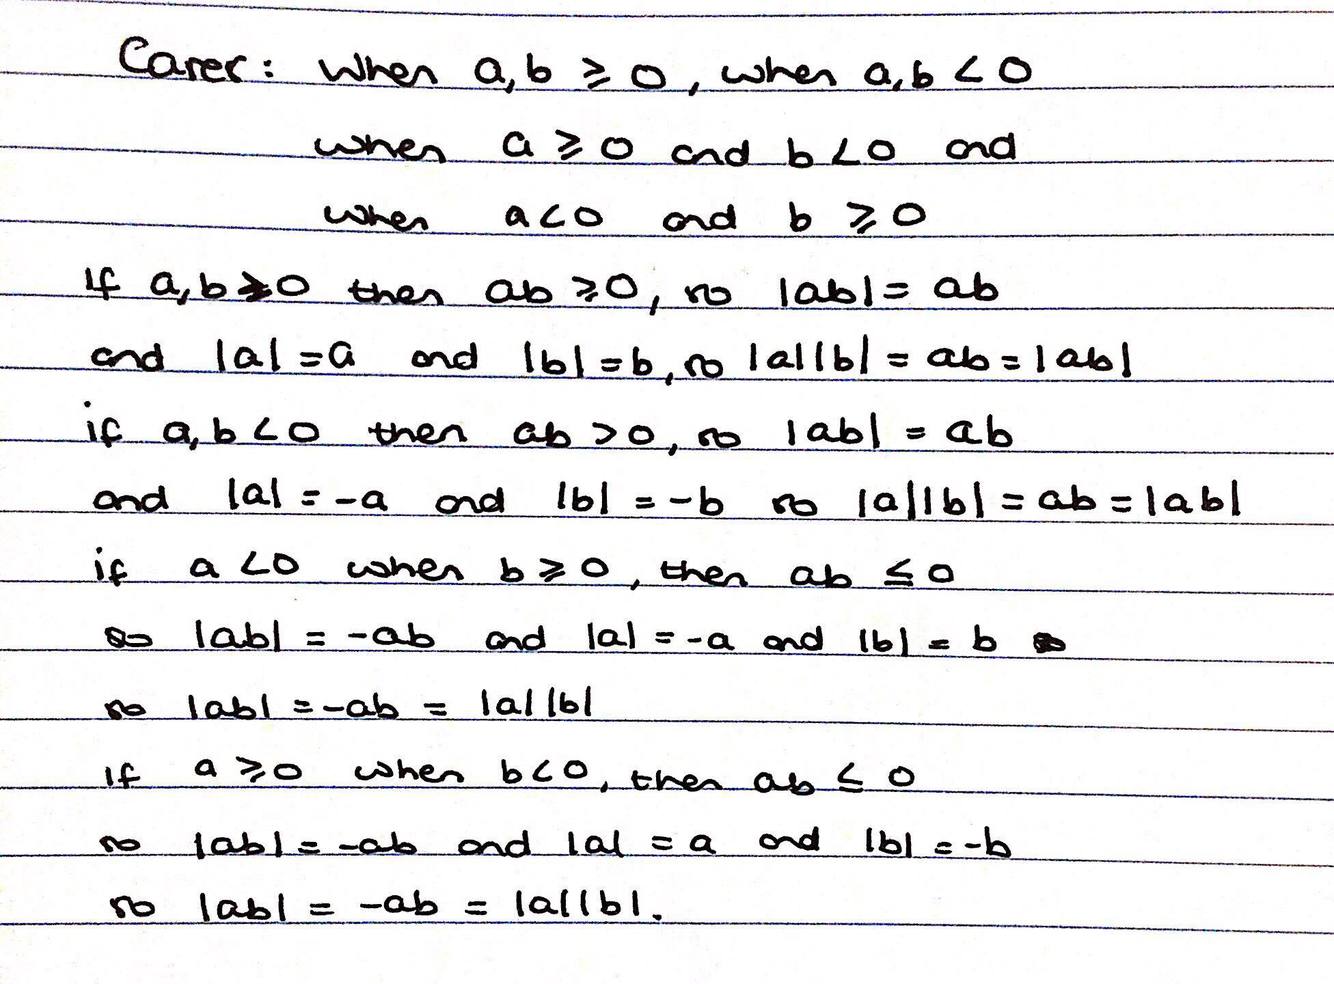 Cases: When a,b ⩾ 0, when a,b < 0
when a ⩾ 0 and b < 0 and
when a < 0 and b ⩾ 0
If a,b ⩾ 0 then ab ⩾ 0, so |ab| = ab
and |a| = a and |b| = b, so |a||b| = ab = |ab|
if a,b < 0 then ab > 0, so |ab| = ab
and |a| = -a and |b| = -b so |a||b| = ab = |ab|
if a < 0 when b ⩾ 0, then ab ≤ 0
so |ab| = -ab and |a| = -a and |b| = b
so |ab| = -ab = |a||b|
If a ⩾ 0 when b < 0, then ab ≤ 0
so |ab| = -ab and |a| = a and |b| = -b
so |ab| = -ab = |a||b|.